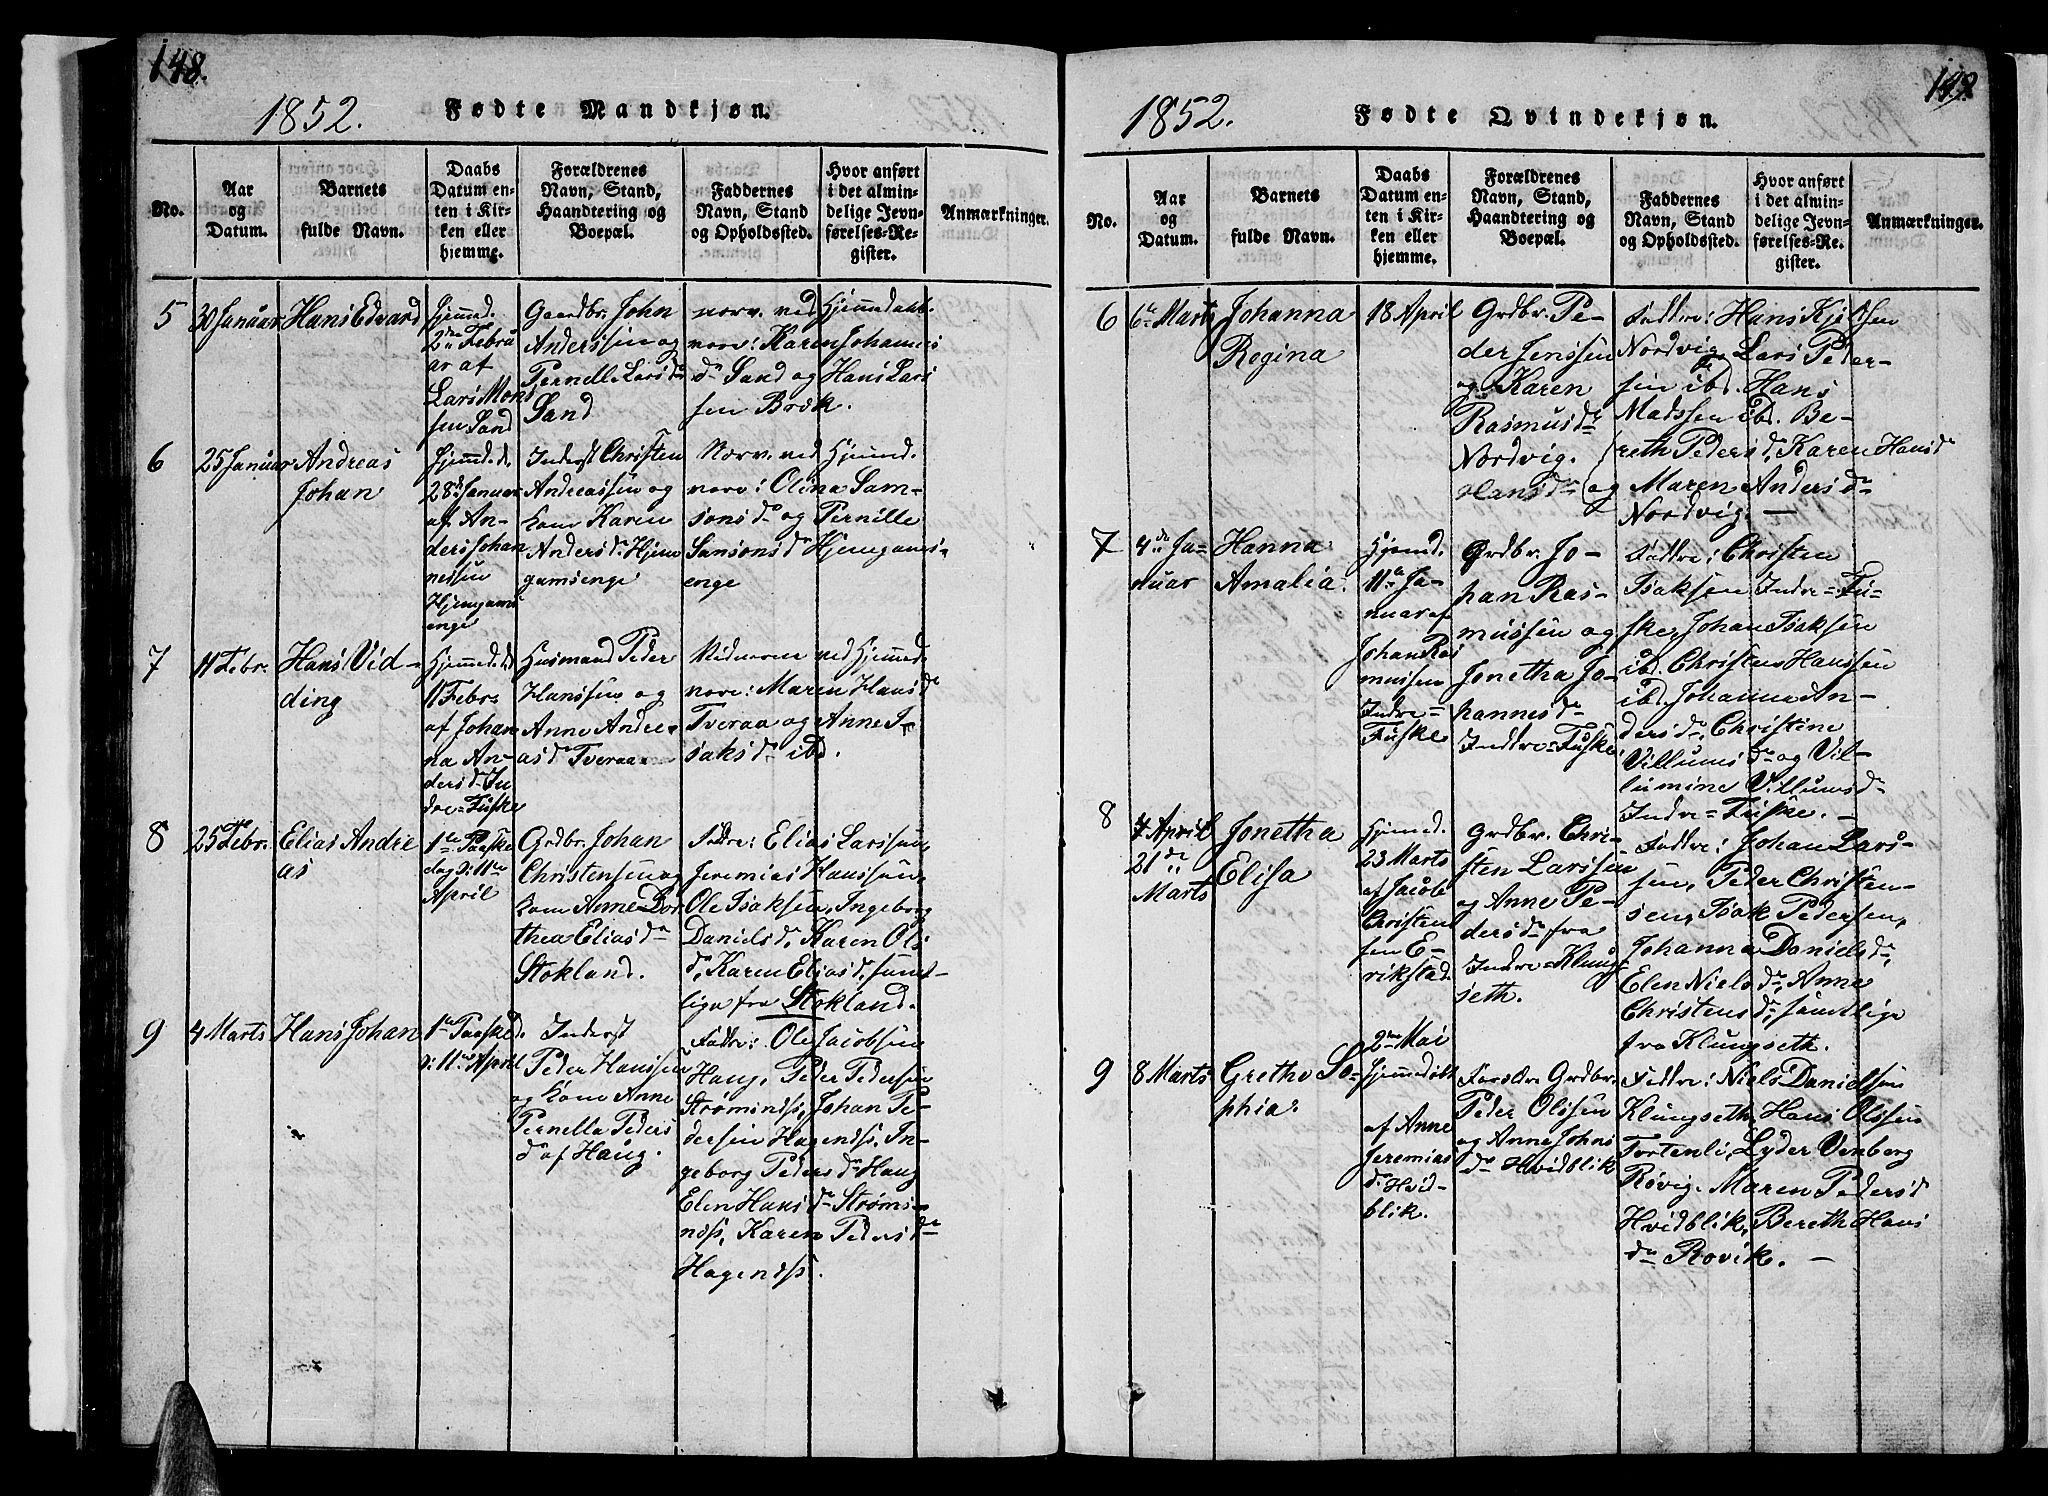 148.
1852. Fødte Mandkjøn.
No.
Aar
og
Datum.
Barnets
fulde Navn.
Daabs
Datum en-
ten i Kir-
ken eller
hjemme.
Forældrenes
Navn, Stand,
Haandtering og
Boepæl.
Faddernes
Navn, Stand
og Opholdssted.
Hvor anført
i det almin-
delige Jevn-
førelses-Re-
gister.
Anmærkninger.
5
30 Januar
Hans Edvard
Hjemmed.
2den Febru
ar af
Lars Mon
sen Sand
Gaardbr. John
Anderssen og
Pernelle Larsd.
Sand
nærv. ved Hjemmedaab.
vare: Karen Johannes
d. Sand og Hans Lars
sen Bræk.
6
25 Januar
Andreas
Johan
Hjemmed. d.
28de Januar
af An-
ders Johan
nessen
Hjemgams
enge
Inderst Christen
Andreassen og
Kone Karen
Andersd. Hjem
gamsenge
Nærv. ved Hjemmed.
vare: Olina Sam-
sonsd. og Pernille
Samsonsd. Hjemgams-
enge
7
11 Febr.
Hans Vid-
ding
Hjemmed. d.
11 Febr.
af Johan
na An-
dersd. In
dre-Fuske
Husmand Peder
Hanssen og
Anne Andre-
asd. Tveraa
Vidnerne ved Hjemmed.
vare: Maren Hansd.
Tveraa og Anne I-
saksd. ibd.
8
25 Febr.
Elias Andre
as
1ste Paaske
dag d: 11te
April
Grdbr. Johan
Christensen og
Kone Anne Dor
thea Eliasd.
Stokland.
Faddre: Elias Larssen,
Jeremias Hanssen,
Ole Isaksen, Ingeborg
Danielsd., Karen Ols
d., Karen Eliasd., samt-
lige fra Stokland.
9
4 Marts
Hans Johan
1ste Paasked.
d: 11te April
Inderst
Peder Hanssen
og Kone Anne
Pernella Peders
d. af Haug.
Faddre: Ole Jacobsen
Haug, Peder Pedersen
Strømsnæss, Johan Pe-
dersen Hagenæss, In-
geborg Pedersd. Haug
Elen Hansd. Strøms-
næss, Karen Pedersd.
Hagenæss.
149.
1852. Fødte Qvindekjøn.
No.
Aar
og
Datum.
Barnets
fulde Navn.
Daabs
Datum en-
ten i Kir-
ken eller
hjemme.
Forældrenes
Navn, Stand,
Haandtering og
Boepæl.
Faddernes
Navn, Stand
og Opholdssted.
Hvor anført
i det almin-
delige Jevn-
førelses-Re-
gister.
Anmærkninger.
6
6te Marts
Johanna
Regina
18 April
Grdbr. Pe-
der Jenssen
og Karen
Rasmusd.
Nordvig.
Faddre: Hans Kjelsen
Nordvig, Lars Peder-
sen ibd. Hans
Madssen ibd. Be-
reth Pedersd., Karen Hansd.
Hansd. og Maren Andersd.
Nordvig. —
7
4de Ja-
nuar
Hanna
Amalia.
Hjemd.
11te Ja-
nuar af
Johan Ras
mussen
Indre-
Fuske
Grdbr. Jo-
han Ras-
mussen og
Jonetha Jo-
hannesd.
Indre-Fuske.
Faddre: Christen
Isaksen Indre-Fu-
ske, Johan Isaksen
ibd. Christen Hanssen
ibd. Johanna An-
dersd., Christine
Villumsd. og Vil-
lumine Villumsd.
Indre-Fuske. —
8
7 April
21de
Marts
Jonetha
Elisa
Hjemd.
23 Marts
af Jacob
Christen
sen E-
rikstad.
Grdbr. Chri-
sten Larssen
og Anne Pe-
dersd. fra
Indre-Klung
seth.
Faddre: Johan Lars-
sen, Peder Christen-
sen, Isak Pedersen,
Johanna Danielsd.,
Elen Nielsd., Anna
Christensd., samtlige
fra Klungseth.
9
8 Marts
Grethe So-
phia.
2den Mai
Hjemmedøbt
af Anne
Jeremias
d. Hvid-
blik.
Grdbr.
Peder Olssen
og Anne Johns
d. Hvidblik
Faddre: Niels Danielsen
Klungseth, Hans Olssen
Tortenli, Lyder Venberg
Røvig. Maren Pedersd.
Hvidblik, Bereth Hans
d. Rovik. —